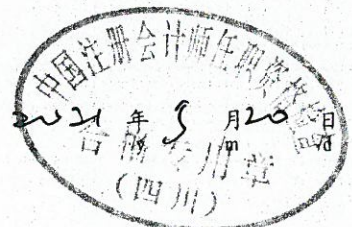 中国注册会计师任职资格检查
2021 年 9 月 20 日
y m d
合格专用章
(四川)